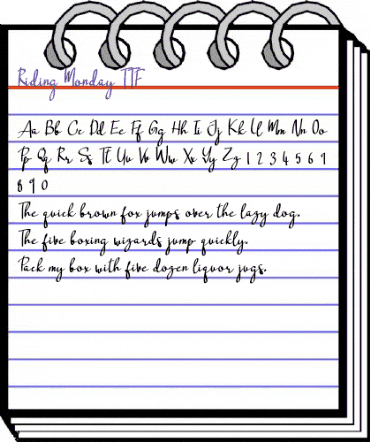 Riding Monday TTF
Aa Bb Cc Dd Ee Ff Gg Hh Ii Jj Kk Ll Mm Nn Oo
Pp Qq Rr Ss Tt Uu Vv Ww Xx Yy Zz 1 2 3 4 5 6 7
8 9 0
The quick brown fox jumps over the lazy dog.
The five boxing wizards jump quickly.
Pack my box with five dozen liquor jugs.